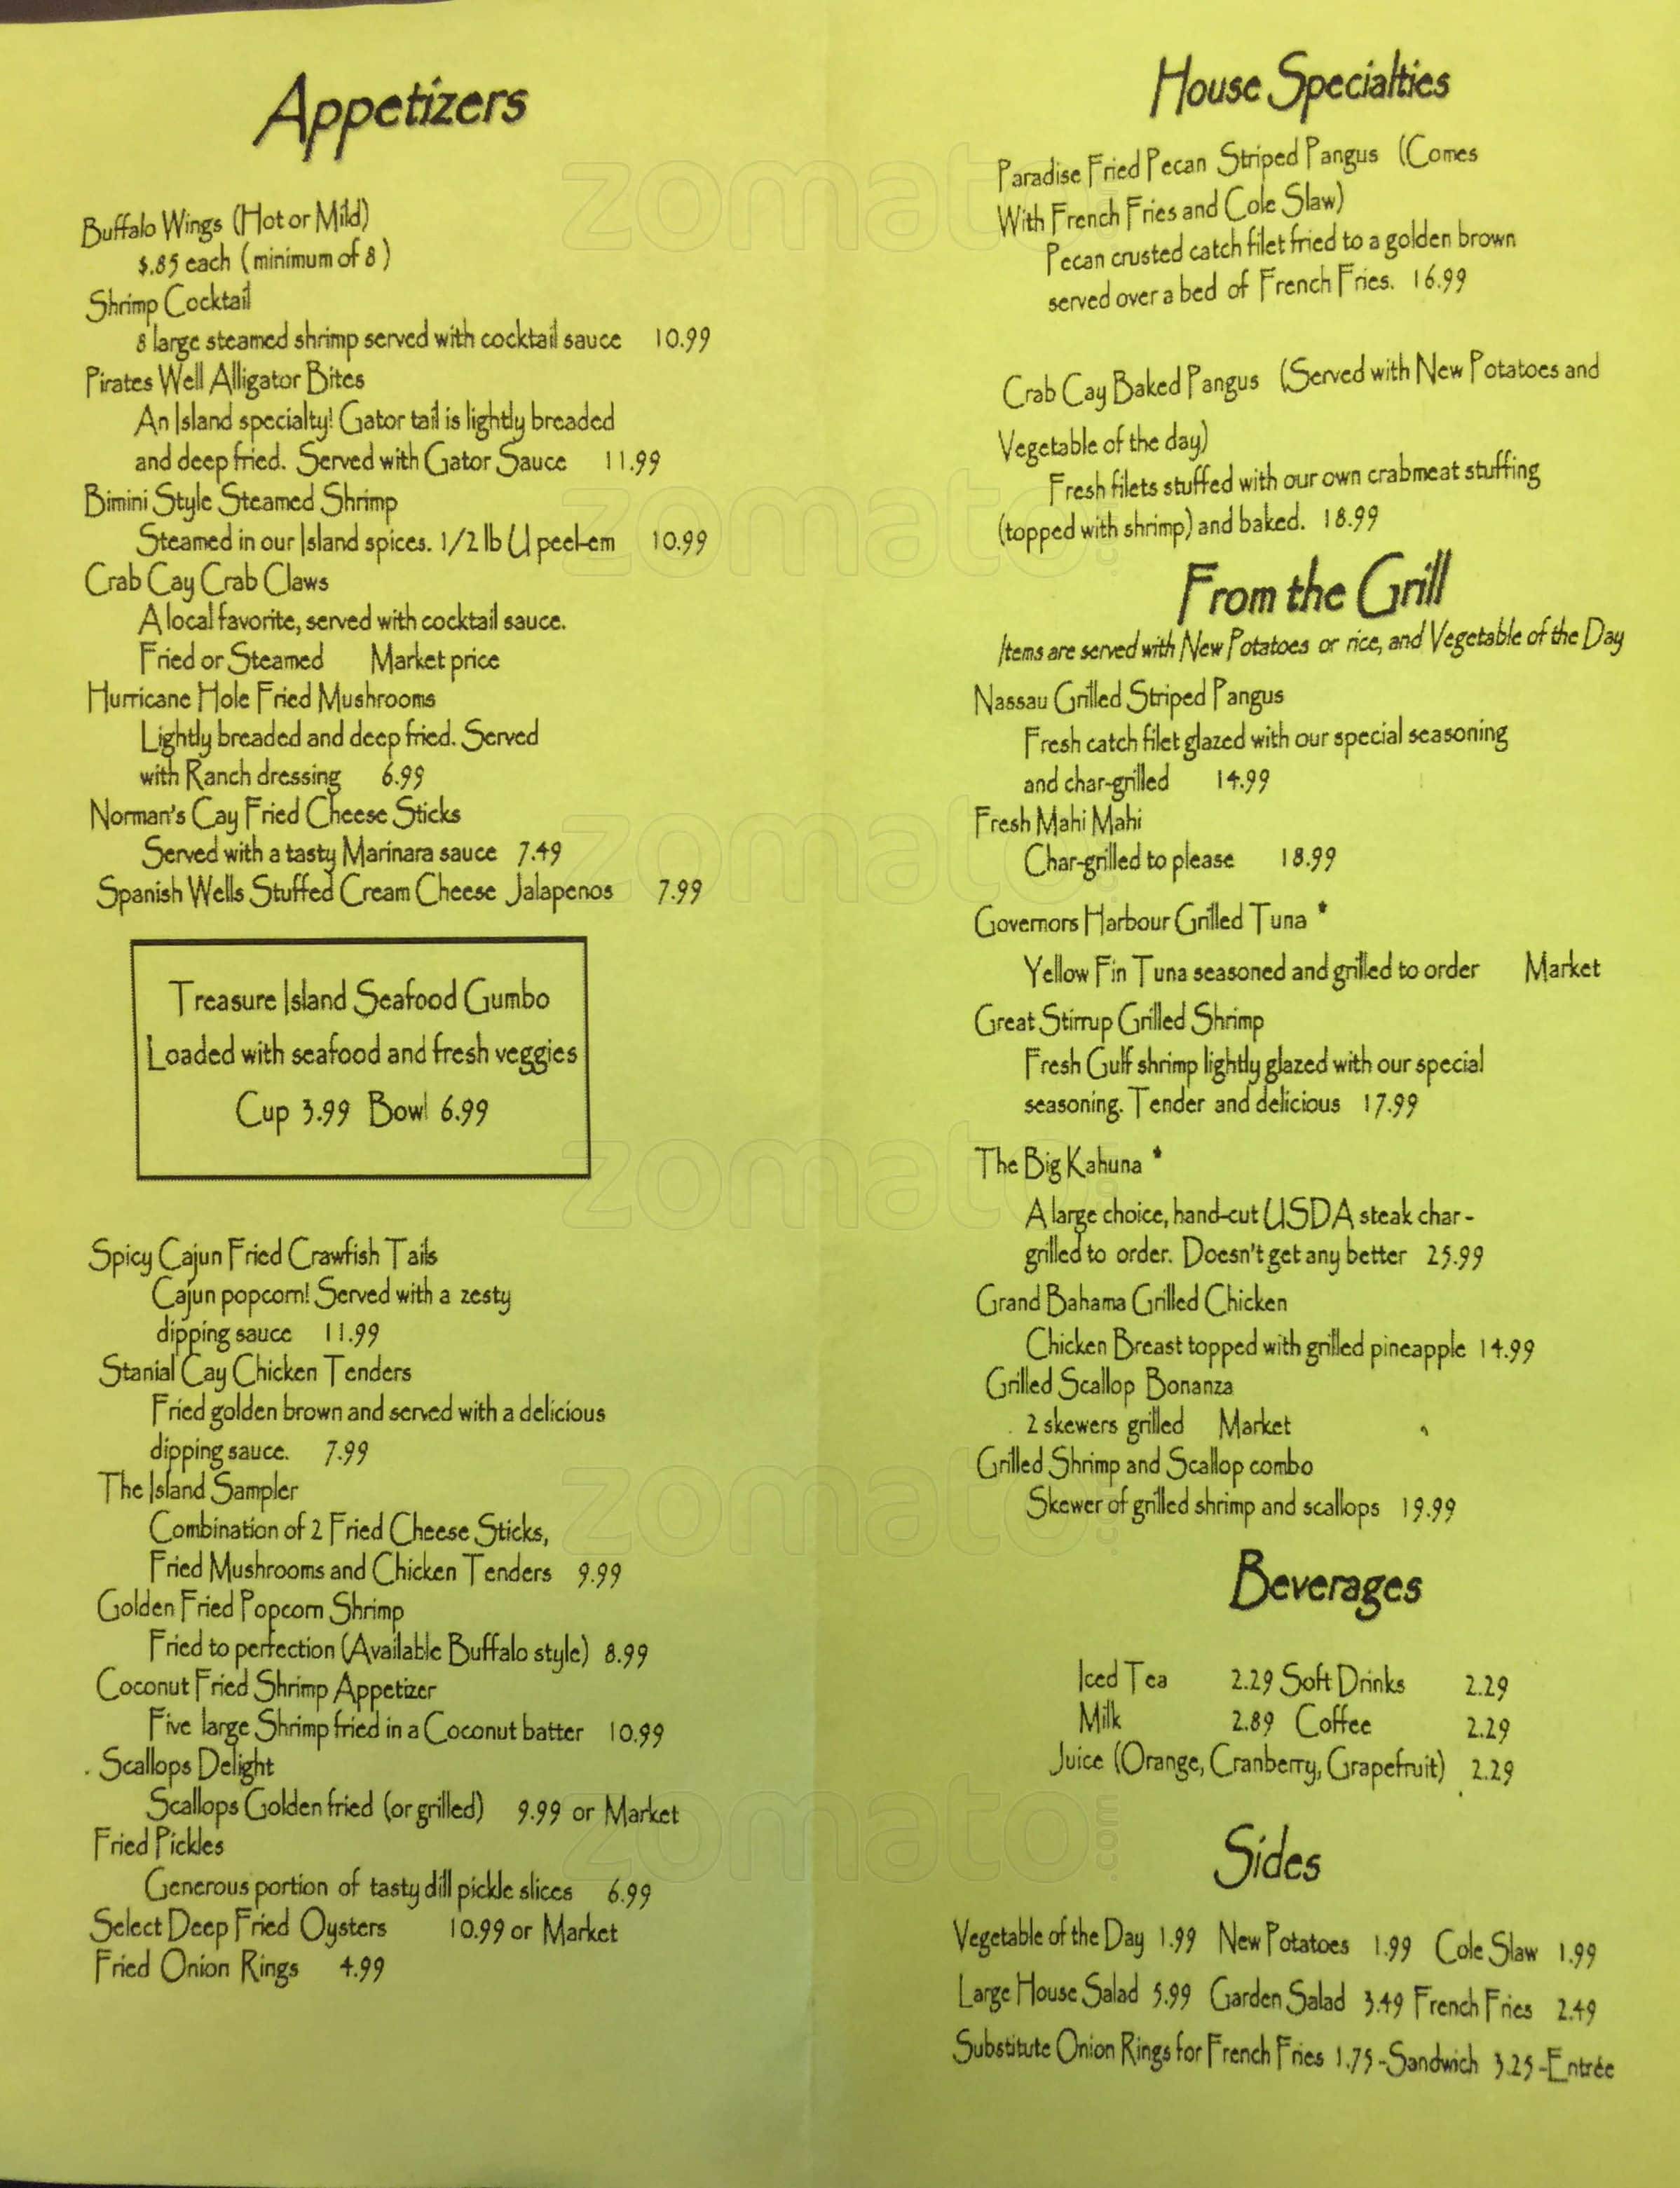 Appetizers
Buffalo Wings (Hot or Mild)
$.85 each (minimum of 8)
Shrimp Cocktail
8 large steamed shrimp served with cocktail sauce 10.99
Pirates Well Alligator Bites
An Island specialty! Gator tail is lightly breaded
and deep fried. Served with Gator Sauce 11.99
Bimini Style Steamed Shrimp
Steamed in our Island spices. 1/2 lb U peel-em 10.99
Crab Cay Crab Claws
A local favorite, served with cocktail sauce.
Fried or Steamed Market price
Hurricane Hole Fried Mushrooms
Lightly breaded and deep fried. Served
with Ranch dressing 6.99
Norman's Cay Fried Cheese Sticks
Served with a tasty Marinara sauce 7.49
Spanish Wells Stuffed Cream Cheese Jalapenos 7.99
Treasure Island Seafood Gumbo
Loaded with seafood and fresh veggies
Cup 3.99 Bowl 6.99
Spicy Cajun Fried Crawfish Tails
Cajun popcorn! Served with a zesty
dipping sauce 11.99
Stanial Cay Chicken Tenders
Fried golden brown and served with a delicious
dipping sauce. 7.99
The Island Sampler
Combination of 2 Fried Cheese Sticks,
Fried Mushrooms and Chicken Tenders 9.99
Golden Fried Popcorn Shrimp
Fried to perfection (Available Buffalo style) 8.99
Coconut Fried Shrimp Appetizer
Five large Shrimp fried in a Coconut batter 10.99
. Scallops Delight
Scallops Golden fried (or grilled) 9.99 or Market
Fried Pickles
Generous portion of tasty dill pickle slices 6.99
Select Deep Fried Oysters 10.99 or Market
Fried Onion Rings 4.99
House Specialties
Paradise Fried Pecan Striped Pangus (Comes
With French Fries and Cole Slaw)
Pecan crusted catch filet fried to a golden brown
served over a bed of French Fries. 16.99
Crab Cay Baked Pangus (Served with New Potatoes and
Vegetable of the day)
Fresh filets stuffed with our own crabmeat stuffing
(topped with shrimp) and baked. 18.99
From the Grill
Items are served with New Potatoes or rice, and Vegetable of the Day
Nassau Grilled Striped Pangus
Fresh catch filet glazed with our special seasoning
and char-grilled 14.99
Fresh Mahi Mahi
Char-grilled to please 18.99
Governors Harbour Grilled Tuna *
Yellow Fin Tuna seasoned and grilled to order Market
Great Stirrup Grilled Shrimp
Fresh Gulf shrimp lightly glazed with our special
seasoning. Tender and delicious 17.99
The Big Kahuna *
A large choice, hand-cut USDA steak char-
grilled to order. Doesn't get any better 25.99
Grand Bahama Grilled Chicken
Chicken Breast topped with grilled pineapple 14.99
Grilled Scallop Bonanza
. 2 skewers grilled Market
Grilled Shrimp and Scallop combo
Skewer of grilled shrimp and scallops 19.99
Beverages
Iced Tea 2.29 Soft Drinks 2.29
Milk 2.89 Coffee 2.29
Juice (Orange, Cranberry, Grapefruit) 2.29
Sides
Vegetable of the Day 1.99 New Potatoes 1.99 Cole Slaw 1.99
Large House Salad 5.99 Garden Salad 3.49 French Fries 2.49
Substitute Onion Rings for French Fries 1.75 -Sandwich 3.25 -Entrée
zomato.com
zomato.com
zomato.com
zomato.com
zomato.com
zomato.com